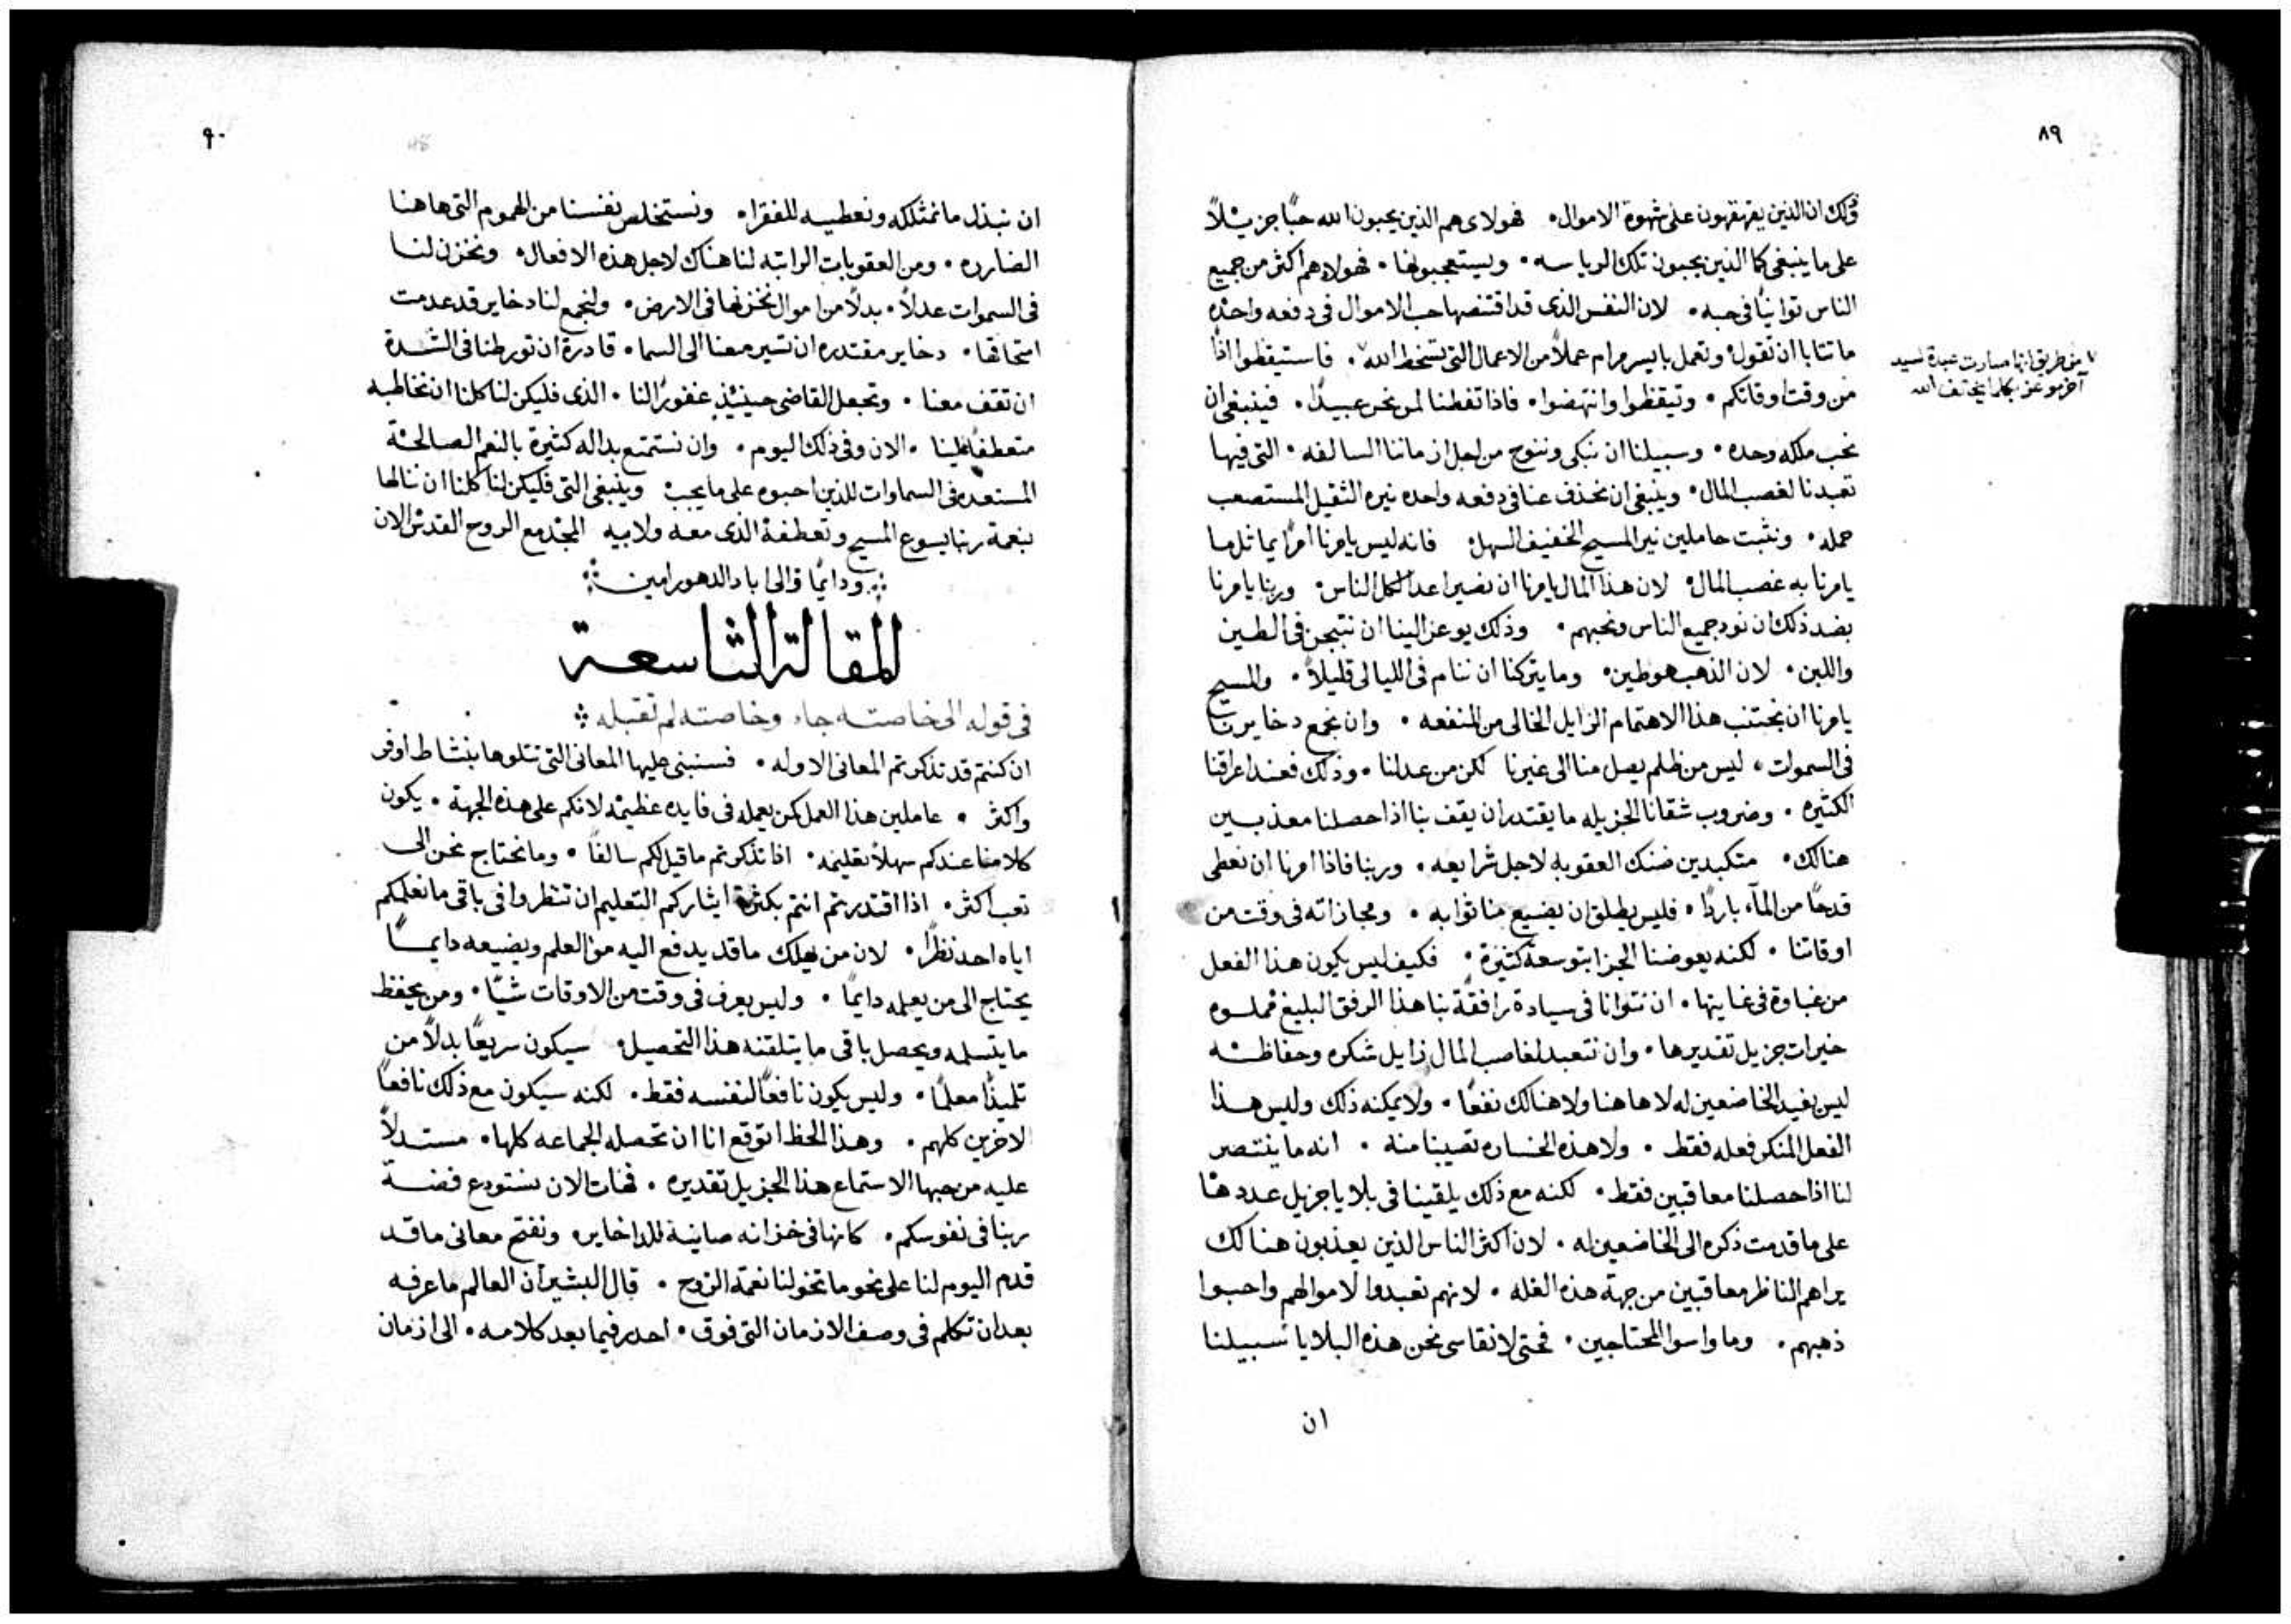 ٨٩
وذلك ان الذين يقهقهون على شهوة الاموال. فهولاى هم الذين يحبون الله حبًا جزيلاً
على ما ينبغى كما الذين يحبون تلك الرياسه. ويستعجبونها. فهولاء هم اكثر من جميع
الناس توانيًا فى حبه. لان النفس الذى قد اقتنصها حب الاموال فى دفعه واحده
ما تتابا ان تقول وتعمل بايسر مرام عملاً من الاعمال التى تسخط الله. فاستيقظوا اذًا
من وقت اوقاتكم. وتيقظوا وانتهضوا. فاذا تفطنا لمن نحن عبيدًا. فينبغى ان
من طريق انها صارت عبدة لسيد
آخر موعز بكلما يخالف الله
نحب ملكه وحده. وسبيلنا ان نبكى وننوح من اجل ازماننا السالفه. التى فيها
تعبدنا لغصب المال. وينبغى ان نحذف عنا فى دفعه واحده نيره الثقيل المستصعب
حمله. ونثبت حاملين نير المسيح الخفيف السهل. فانه ليس يامرنا امرًا يماثل ما
يامرنا به غصب المال. لان هذا المال يامرنا ان نصير اعدا لكل الناس. وربنا يامرنا
بضد ذلك ان نود جميع الناس ونحبهم. وذلك يوعز الينا ان نتبجن فى الطين
واللبن. لان الذهب هو طين. وما يتركنا ان ننام فى الليالى قليلاً. والمسيح
يامرنا ان نجتنب هذا الاهتمام الزايل الخالى من المنفعه. وان نجمع دخايرنا
فى السموات. ليس من ظلم يصل منا الى غيرنا لكن من عدلنا. وذلك فعند اعراقنا
الكثيره. وضروب شقانا الجزيله ما يقتدر ان يقف بنا اذا حصلنا معذبين
هنالك. متكبدين ضنك العقوبه لاجل شرايعه. وربنا فاذا امرنا ان نعطى
قدحًا من المآء باردًا. فليس يطلق ان يضيع منا ثوابه. ومجازاته فى وقت من
اوقاتنا. لكنه يعوضنا الجزا بتوسعة كثيرة. فكيف ليس يكون هذا الفعل
من غباوة فى غايتها. ان نتوانا فى سيادة رافقة بنا هذا الرفق البليغ مملوه
خيرات جزيل تقديرها. وان نتعبد لغاصب المال زايل شكره وحفاظته
ليس يفيد الخاضعين له لا هاهنا ولا هنالك نفعًا. ولا يمكنه ذلك وليس هذا
الفعل المنكر فعله فقط. ولا هذه الخساره تصيبنا منه. انه ما ينتصر
لنا اذا حصلنا معاقبين فقط. لكنه مع ذلك يلقينا فى بلايا جزيل عددها
على ما قدمت ذكره الى الخاضعين له. لان اكثر الناس الذين يعذبون هنالك
يراهم الناظر معاقبين من جهة هذه العله. لانهم تعبدوا لاموالهم واحبوا
ذهبهم. وما واسوا المحتاجين. فحتى لا نقاسى نحن هذه البلايا سبيلنا
ان
٩٠
ان نبذل ما نمتلكه ونعطيه للفقراء. ونستخلص نفسنا من الهموم التى هاهنا
الضاره. ومن العقوبات الراتبه لنا هناك لاجل هذه الافعال. ونخزن لنا
فى السموات عدلاً. بدلاً من اموال نخزنها فى الارض. ولنجمع لنا دخاير قد عدمت
امتحاقها. دخاير مقتدره ان تسير معنا الى السما. قادرة ان تورطنا فى الشدة
ان تقف معنا. وتجعل القاضى حينئذٍ غفورًا لنا. الذى فليكن لنا كلنا ان نخاطبه
متعطفًا علينا. الان وفى ذلك اليوم. وان نستمتع بداله كثيرة بالنعم الصالحة
المستعده فى السماوات للذين احبوه على ما يجب. وينبغى التى فليكن لنا كلنا ان ننالها
بنعمة ربنا يسوع المسيح وتعطفه الذى معه ولابيه المجد مع الروح القدس الان
ودايمًا والى اباد الدهور امين
المقالة التاسعة
فى قوله الى خاصته جاء وخاصته لم تقبله
ان كنتم قد تذكرتم المعانى الاوله. فسنبنى عليها المعانى التى نتلوها بنشاط اوفر
واكثر. عاملين هذا العمل كمن يعمله فى فايده عظيمه لانكم على هذه الجهة. يكون
كلامنا عندكم سهلاً تعليمه. اذا تذكرتم ما قيل لكم سالفًا. وما نحتاج نحن الى
تعب اكثر. اذا اقتدرتم انتم بكثرة ايثاركم التعليم ان تنظروا فى باقى ما نعلمكم
اياه احد نظرًا. لان من يهلك ما قد يدفع اليه من العلم ويضيعه دايمًا
يحتاج الى من يعلمه دايمًا. وليس يعرف فى وقت من الاوقات شيًا. ومن يحفظ
ما يتسلمه ويحصل باقى ما يتلقنه هذا التحصيل. سيكون سريعًا بدلاً من
تلميذًا معلمًا. وليس يكون نافعًا لنفسه فقط. لكنه سيكون مع ذلك نافعًا
لاخرين كلهم. وهذا الحظ اتوقع انا ان تحصله الجماعه كلها. مستدلاً
عليه من حبها الاستماع هذا الجزيل تقديره. فهات الان نستودع فضة
ربنا فى نفوسكم. كانها فى خزانه صاينة للداخايره ونفتح معانى ما قد
قدم اليوم لنا على نحو ما تخولنا نعمة الروح. قال البشير ان العالم ما عرفه
بعد ان تكلم فى وصف الازمان التى فوق. احدر فيما بعد كلامه. الى ازمان